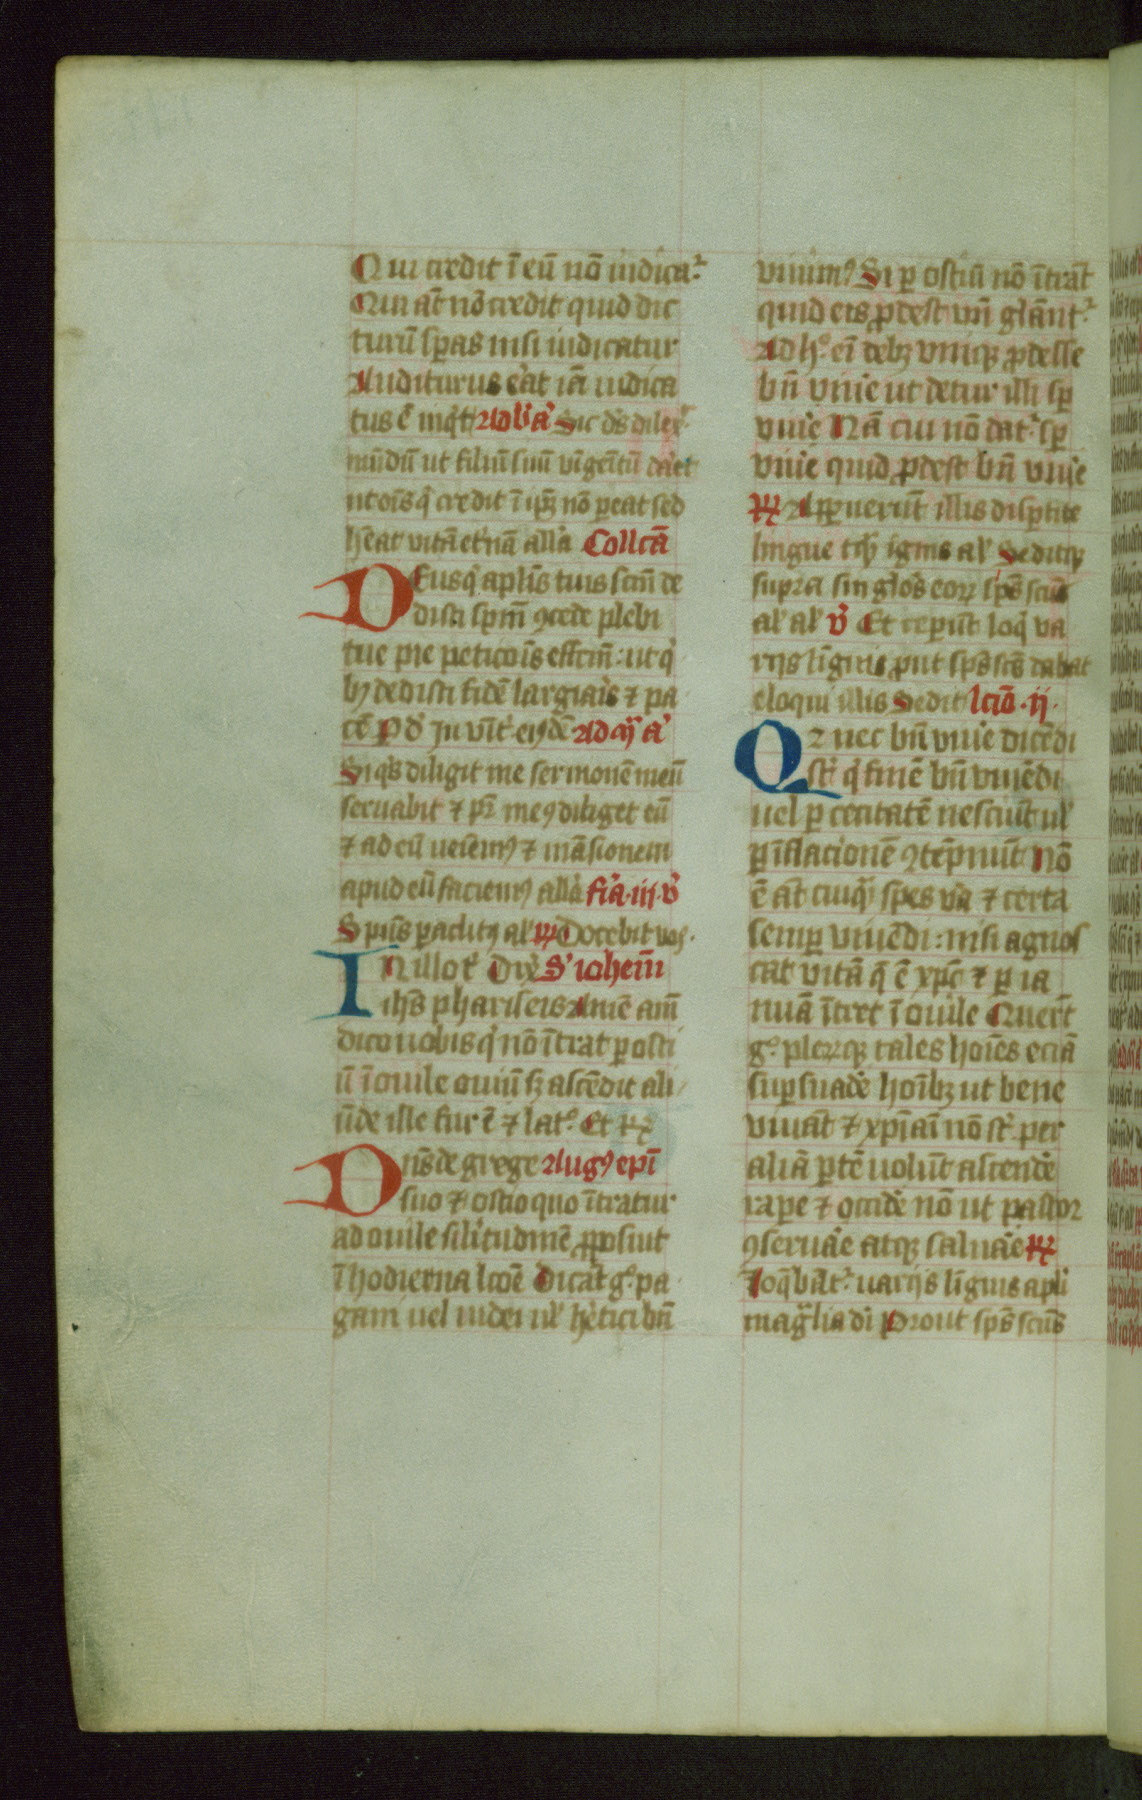 Qui credit ī eū nō iudicaᵗ
Qui aūt nō credit quid dic
turū speras nisi iudicatur
Auditurus erat iā iudica
tus ē inqt Ad bn̄ a᷎ Sic ds dilex
mūdū ut filiū suū vnigenitū daret
ut oīs q̄ credit ī ipm̄ nō pereat sed
hēat vitā et̄nā alla Collcā
Deus q̄ aplis tuis scm̄ de
disti sp̄m ꝯcede plebi
tue pie peticōis effcm̄: ut q̄
bꝫ dedisti fidē largiaris ⁊ pa
cē P d Jn vnit eiꝰdē Ad mꝫ a᷎
Siqͥs diligit me sermonē meū
seruabit ⁊ pr̄ meꝰ diliget eū
⁊ ad eū veniemꝰ ⁊ māsionem
apud eū faciemꝰ alla fr̄a·iii·v᷎
Spūs paclitꝰ al' ꝶ Docebit vos·
In illo t̄ Dix̄ S' iohem̄
ihs̄ phariseis Amē amē
dico uobis q̄ nō ītrat ꝑ osti
ū ī ouile ouiū sꝫ ascēdit ali
ūde ille fur ē ⁊ latᵒ Et ꝶ
Dn̄s de grege Augꝰ ep̄i
suo ⁊ ostio quo ītratur
ad ouile silitudinē ꝓposuit
ī hodierna lcōe Dicāt gͦ pa
gani uel iudei ul' hetici bn̄
viuimꝰ Si ꝑ ostiū nō ītrāt
quid eis ꝓdest vn̄ gl̄antᵗ
Ad hͦ eī debꝫ vniqꝫ ꝓdesse
bn̄ viuē ut detur illi sp̄
viuē Nā cui nō datᵗ sp̄
viuē quid ꝓdest bn̄ viuē
ꝶ Apparuerūt illis disptite
lingue tqͣ ignis al' Seditqꝫ
supra singlos eoꝝ sp̄s scūs
al' al' v᷎ Et ceperūt loq̄ va
rijs līguis ꝓut sp̄s scūs dabat
eloqui illis Sedit lcīo·ij·
Qr nec bn̄ viuē dicēdi
st̄ q̄ finē bn̄ viuēdi
uel ꝑ cecitatē nesciūt ul'
ꝑ īflacionē ꝯtēpnūt Nō
ē aūt cuiqͣ spes va ⁊ certa
semꝑ viuēdi: nisi agnos
cat vitā q̄ ē xpc̄ ⁊ ꝑ ia
nuā ītret ī ouile Querūt
gͦ pleꝝqꝫ tales hoīes eciā
ꝑsuadē hoībꝫ ut bene
viuāt ⁊ xp̄iaī nō st̄ per
aliā ptē uolūt ascendē
rape ⁊ occidē nō ut pastor
ꝯseruāe atqꝫ saluāe ꝶ
Loqͣbātᵗ uarijs līguis apli
magͣlia di Prout sp̄s scūs